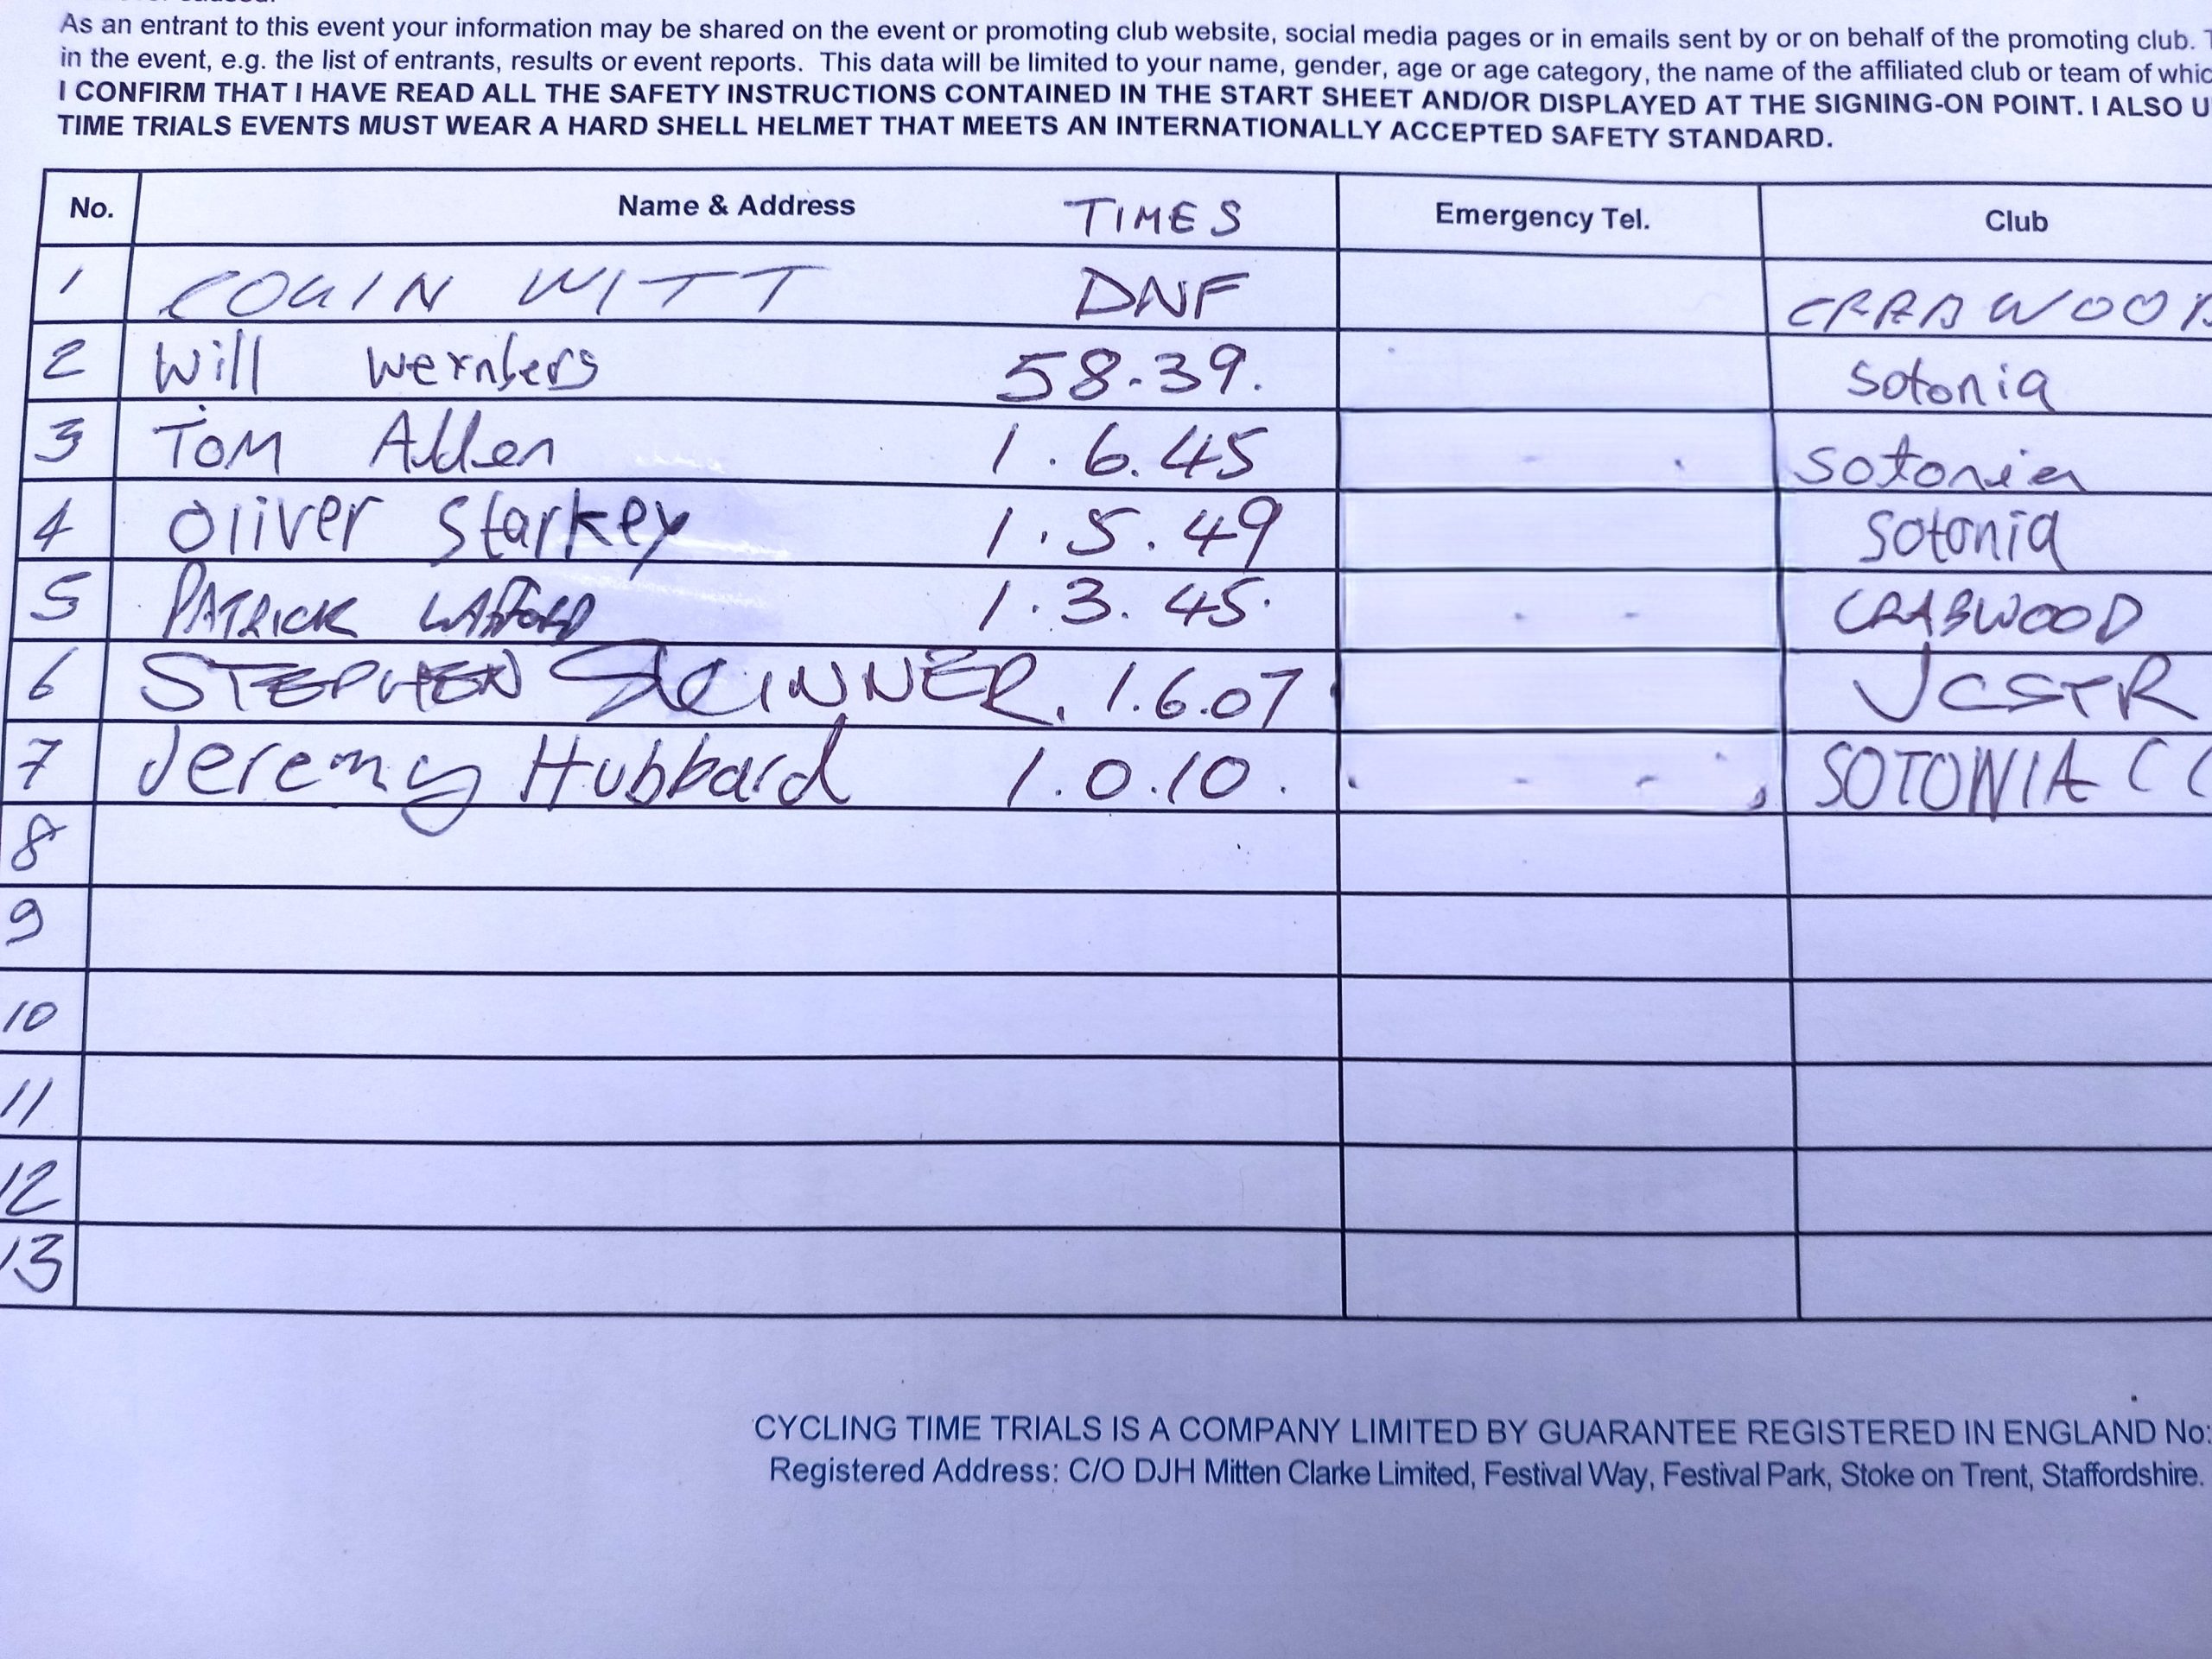 As an entrant to this event your information may be shared on the event or promoting club website, social media pages or in emails sent by or on behalf of the promoting club.
in the event, e.g. the list of entrants, results or event reports. This data will be limited to your name, gender, age or age category, the name of the affiliated club or team of whic
I CONFIRM THAT I HAVE READ ALL THE SAFETY INSTRUCTIONS CONTAINED IN THE START SHEET AND/OR DISPLAYED AT THE SIGNING-ON POINT. I ALSO U
TIME TRIALS EVENTS MUST WEAR A HARD SHELL HELMET THAT MEETS AN INTERNATIONALLY ACCEPTED SAFETY STANDARD.
No. Name & Address TIMES Emergency Tel. Club
1 WITT DNF CRABWOOD
2 Will 58.39. Sotonia
3 TOM Allen 1.6.45 Sotonia
4 Oliver Starkey 1.5.49 Sotonia
5 PATRICK 1.3.45. CRABWOOD
6 STEPHEN SKINNER. 1.6.07 VCSTR
7 Jeremy Hubbard 1.0.10. SOTONIA CC
8
9
10
11
12
13
CYCLING TIME TRIALS IS A COMPANY LIMITED BY GUARANTEE REGISTERED IN ENGLAND No:
Registered Address: C/O DJH Mitten Clarke Limited, Festival Way, Festival Park, Stoke on Trent, Staffordshire.